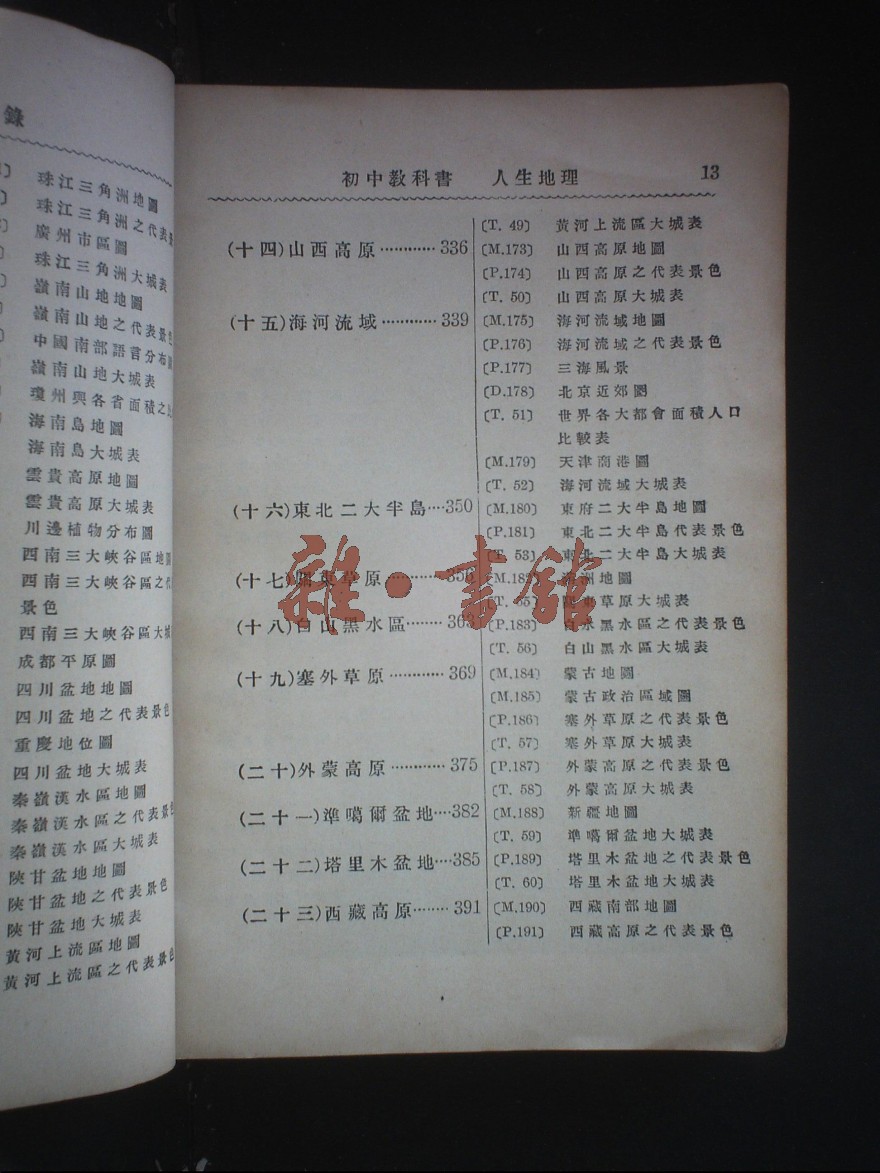 錄
珠江三角洲地圖
珠江三角洲之代表景
廣州市區圖
珠江三角洲大城表
嶺南山地地圖
嶺南山地之代表景色
中國南部語言分布圖
嶺南山地大城表
瓊州與各省面積之比
海南島地圖
海南島大城表
雲貴高原地圖
雲貴高原大城表
川邊植物分布圖
西南三大峽谷區地圖
西南三大峽谷區之代
景色
西南三大峽谷區大城
成都平原圖
四川盆地地圖
四川盆地之代表景色
重慶地位圖
四川盆地大城表
秦嶺漢水區地圖
秦嶺漢水區之代表景色
秦嶺漢水區大城表
陝甘盆地地圖
陝甘盆地之代表景色
陝甘盆地大城表
黃河上流區地圖
黃河上流區之代表景色
初中教科書 人生地理 13
〔T. 49〕 黃河上流區大城表
(十四)山西高原············336 〔M.173〕 山西高原地圖
〔P.174〕 山西高原之代表景色
〔T. 50〕 山西高原大城表
(十五)海河流域············339 〔M.175〕 海河流域地圖
〔P.176〕 海河流域之代表景色
〔P.177〕 三海風景
〔D.178〕 北京近郊圖
〔T. 51〕 世界各大都會面積人口
比較表
〔M.179〕 天津商港圖
〔T. 52〕 海河流域大城表
(十六)東北二大半島····350 〔M.180〕 東府二大半島地圖
〔P.181〕 東北二大半島代表景色
〔T. 53〕 東北二大半島大城表
(十七)關東草原 〔M.182〕 洲地圖
〔T. 55〕 東草原大城表
(十八)白山黑水區········363 〔P.183〕 白水黑水區之代表景色
〔T. 56〕 白山黑水區大城表
(十九)塞外草原············369 〔M.184〕 蒙古地圖
〔M.185〕 蒙古政治區域圖
〔P.186〕 塞外草原之代表景色
〔T. 57〕 塞外草原大城表
(二十)外蒙高原············375 〔P.187〕 外蒙高原之代表景色
〔T. 58〕 外蒙高原大城表
(二十一)準噶爾盆地····382 〔M.188〕 新疆地圖
〔T. 59〕 準噶爾盆地大城表
(二十二)塔里木盆地····385 〔P.189〕 塔里木盆地之代表景色
〔T. 60〕 塔里木盆地大城表
(二十三)西藏高原········391 〔M.190〕 西藏南部地圖
〔P.191〕 西藏高原之代表景色
雜·書館